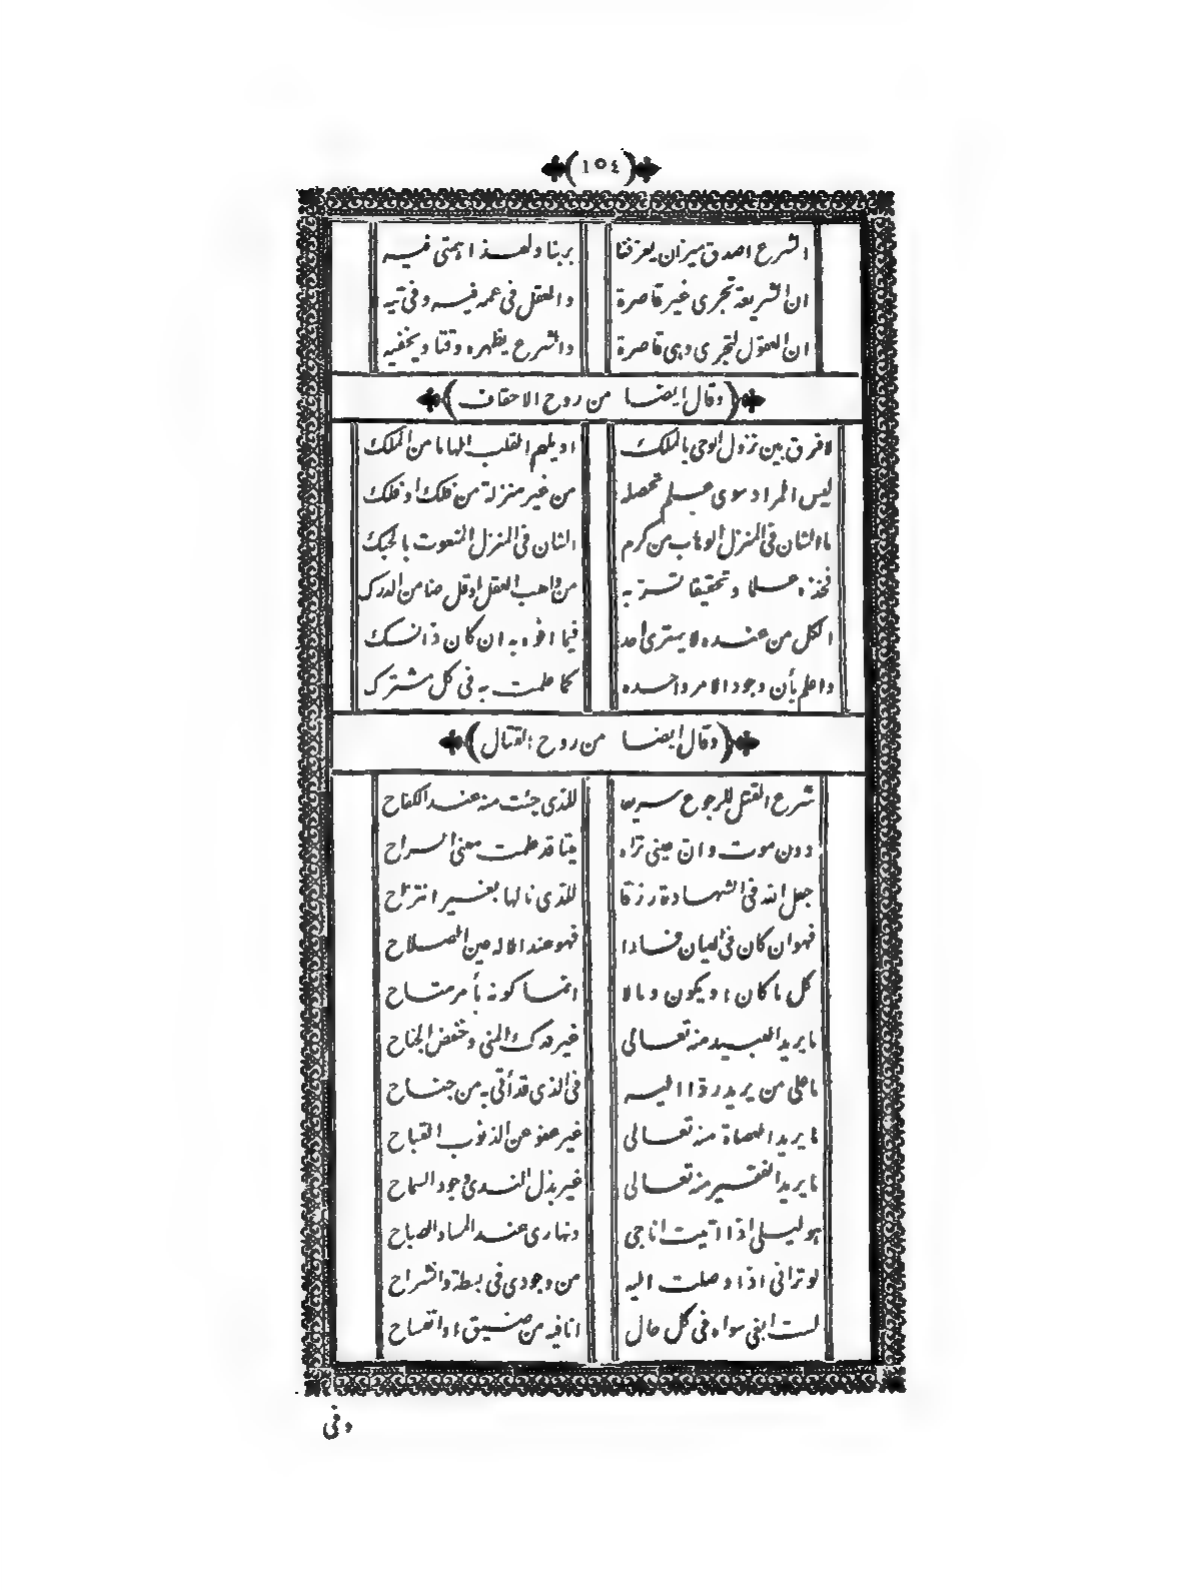 (١٥٤)
الشرع اصدق ميزان يعرفنا بربنا ولهذا ايهمتى فيه
ان الشريعة تجرى غير قاصرة والعقل فى عمه فيه وفى تيه
ان العقول لتجرى وهى قاصرة والشرع يظهره وقتا ويخفيه
(وقال ايضا من روح الاحقاف)
لا فرق بين نزول الوحى بالملك او يلهم القلب الهاما من الملك
ليس المراد سوى علم تحصله من غير منزلة من فلك او فلك
ما الشان فى المنزل الوهاب من كرم الشان فى المنزل المنعوت بالحبك
فخذه علما وتحقيقا تسر به من واهب العقل او قل ضامن الدرك
الكل من عنده لا يمترى احد فيما افوه به ان كان ذا نسك
واعلم بأن وجود الامر واحده كما علمت به فى كل مشترك
(وقال ايضا من روح القتال)
شرع القتل للرجوع سريعا للذى جئت منه عند الكفاح
دون موت وان عينى تراه ميتا قد علمت معنى السراح
جعل الله فى الشهادة رزقا للذى نالها بغير انتزاح
فهو ان كان فى العيان فسادا فهو عند الاله عين الصلاح
كل ما كان او يكون وما لا انما كونه بأمر متاح
ما يريد العبيد منه تعالى غير درك المنى وخفض الجناح
ما على من يريد ردّا اليه فى الذى قد أتى به من جناح
ما يريد العصاة منه تعالى غير عفو عن الذنوب القباح
ما يريد الفقير منه تعالى غير بذل الندى وجود السماح
هو ليلى اذا اتيت اناجى ونهارى عند المسا والصباح
لو ترانى اذا وصلت اليه من وجودى فى بسطة وانشراح
لست ابغى سواه فى كل حال انا فيه من ضيق او انفساح
وفى